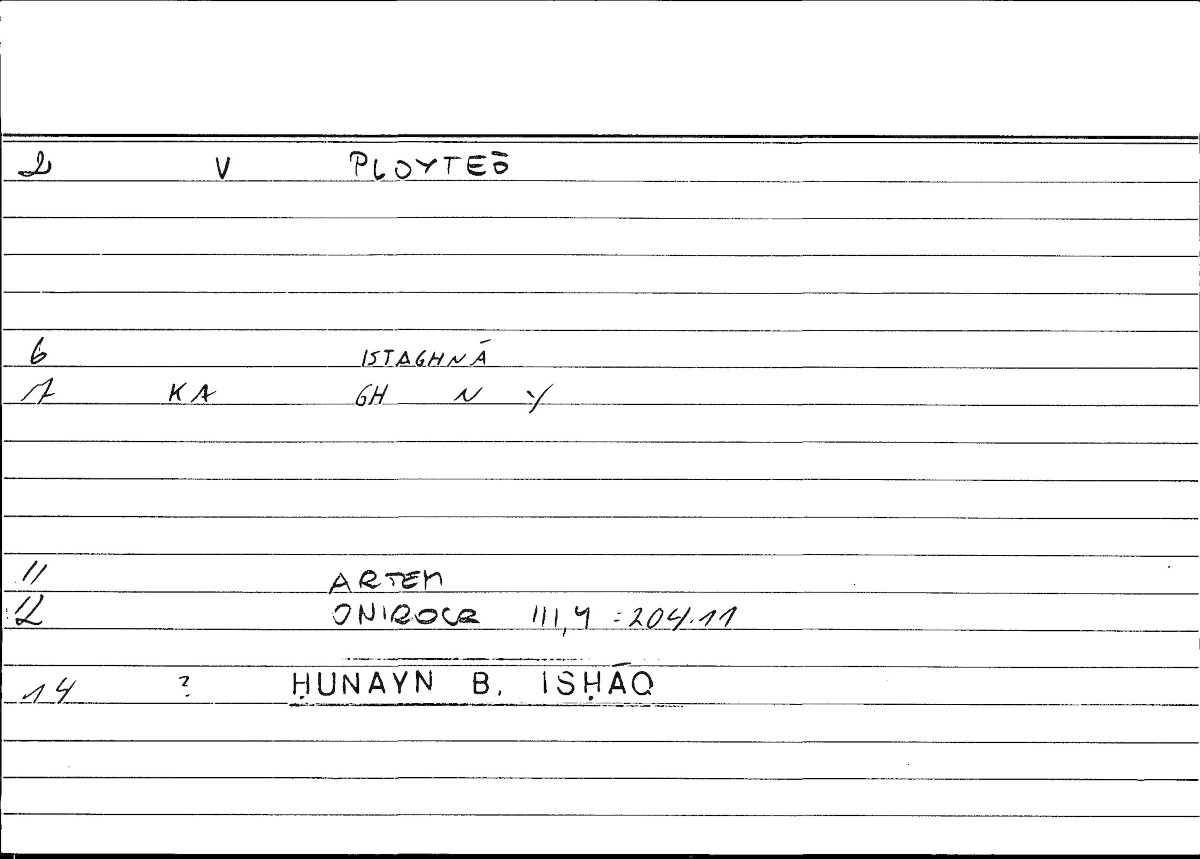 2 V PLOYTEŌ
6 ISTAGHNĀ
7 KA GH N Y
11 ARTEM
12 ONIROCR III,4 = 204.11
14 ? ḤUNAYN B. ISḤĀQ